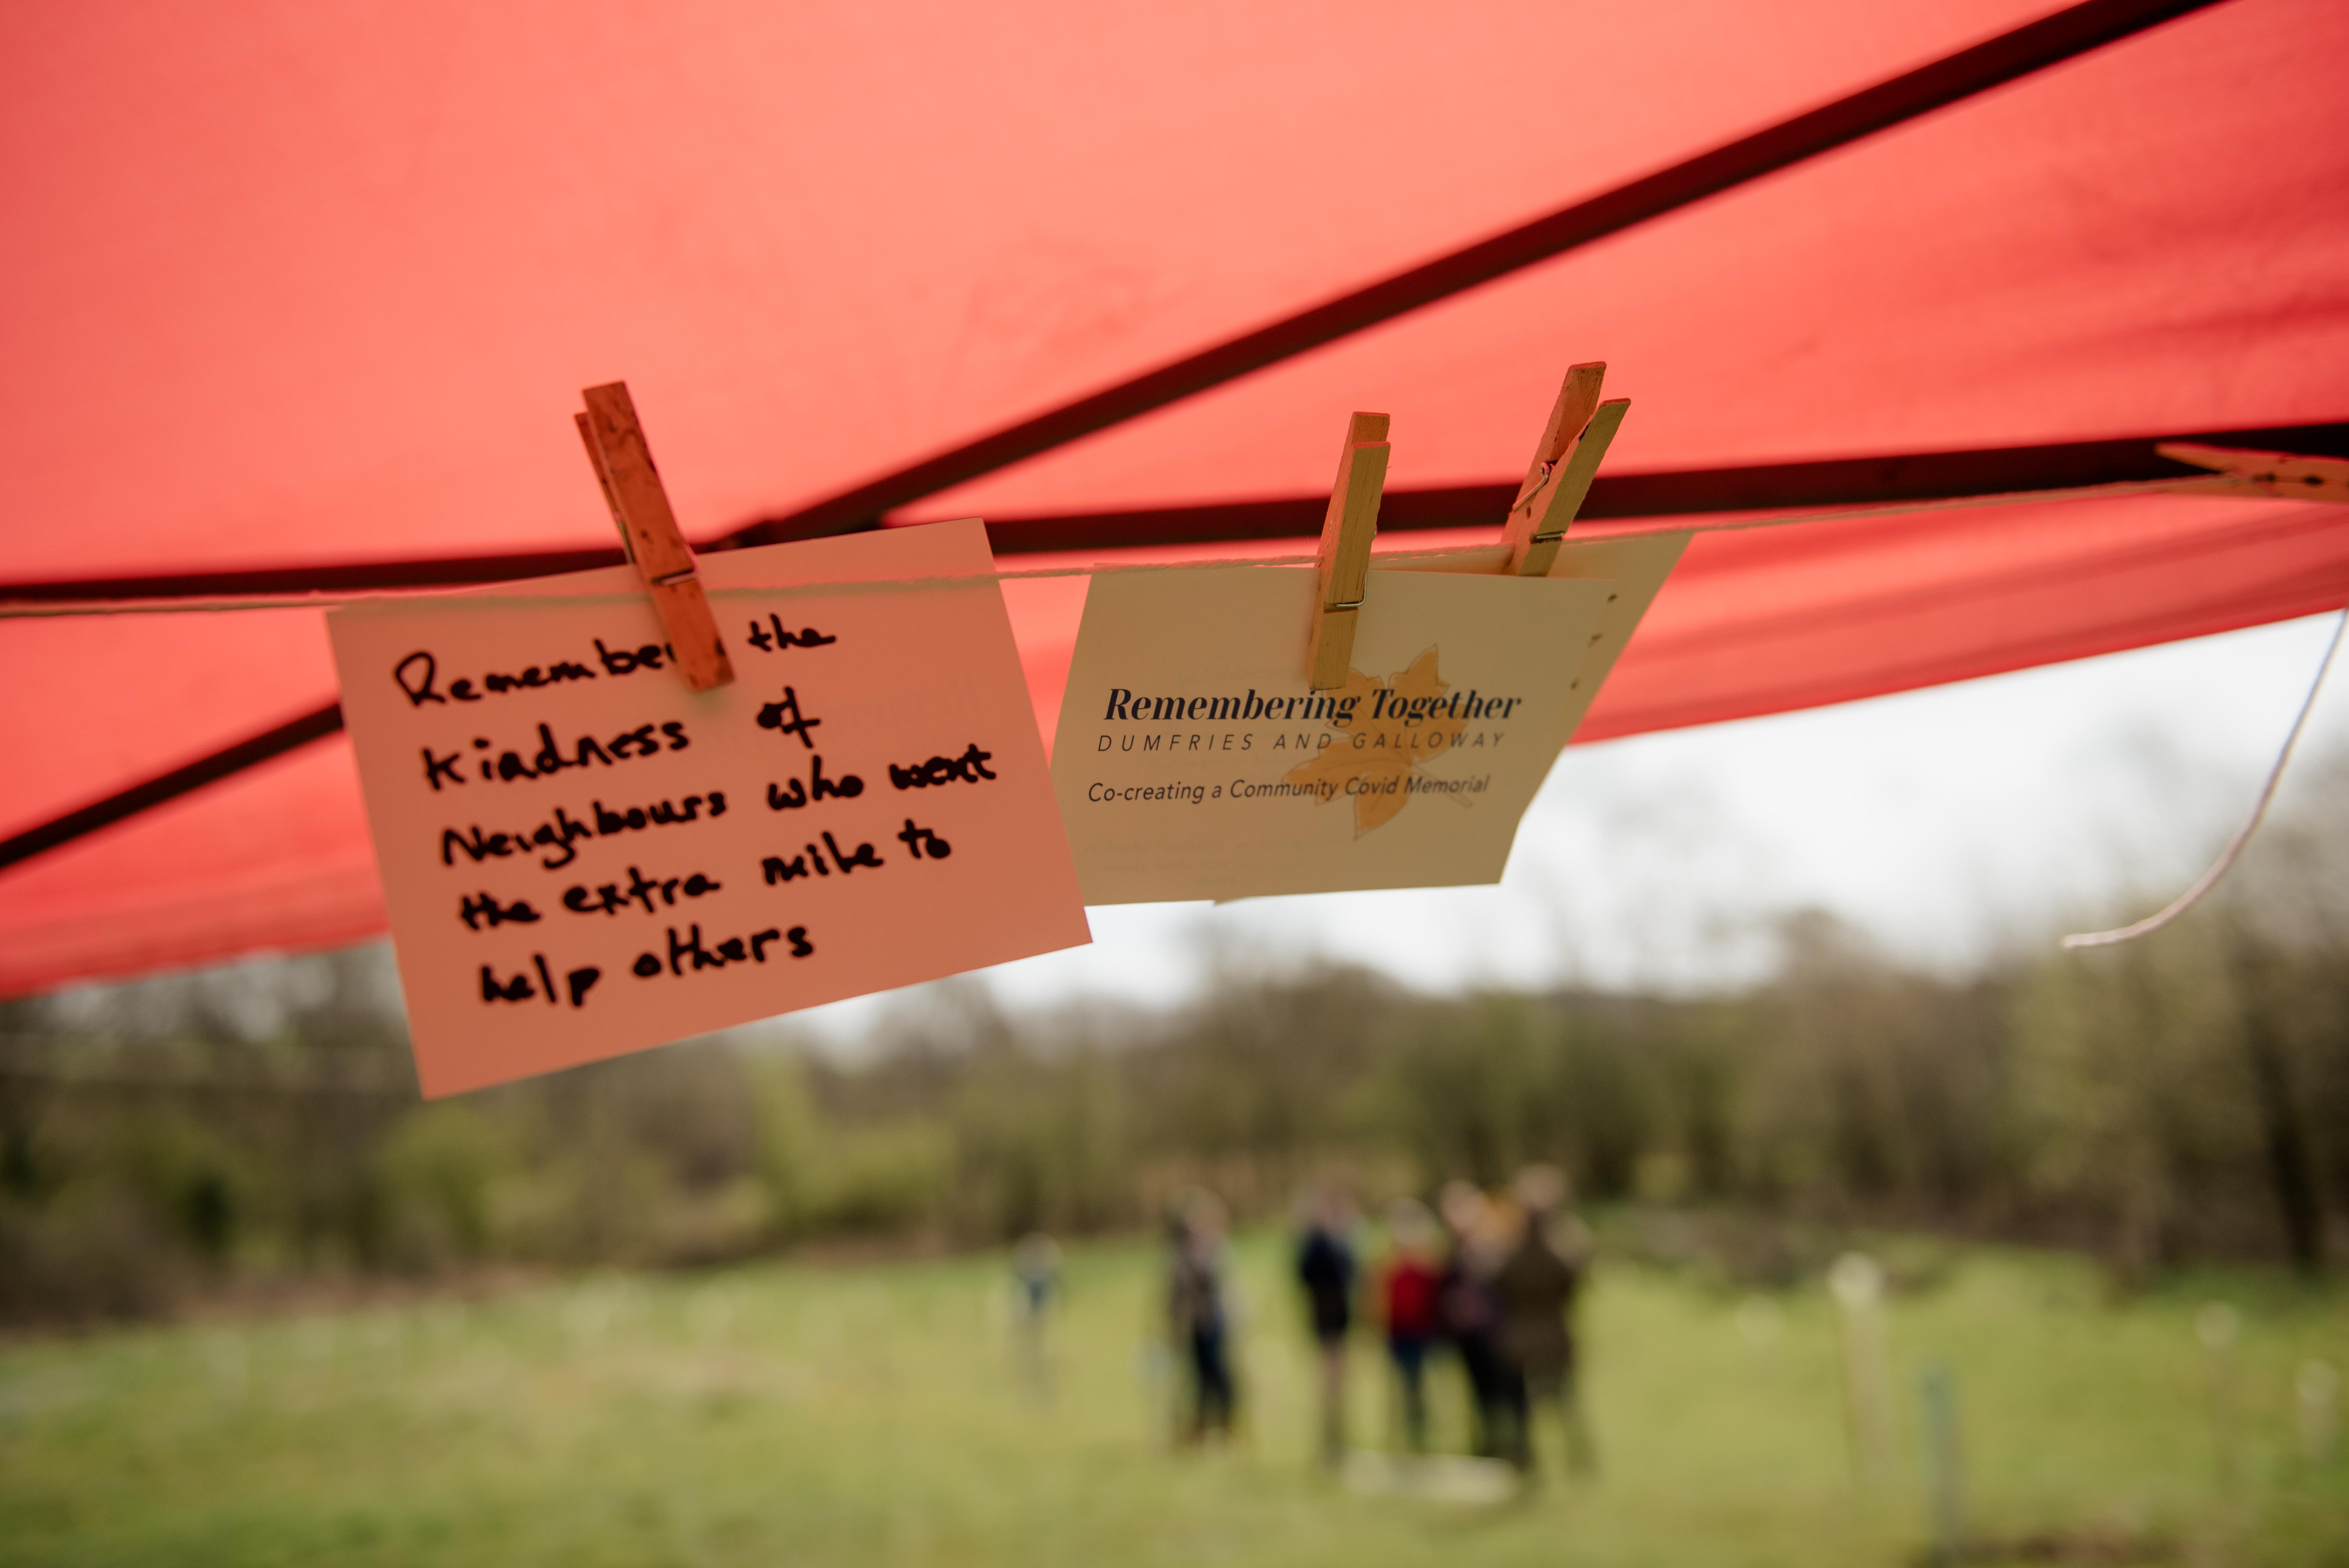 Remember the
Kindness of
Neighbours who went
the extra mile to
help others
Remembering Together
DUMFRIES AND GALLOWAY
Co-creating a Community Covid Memorial